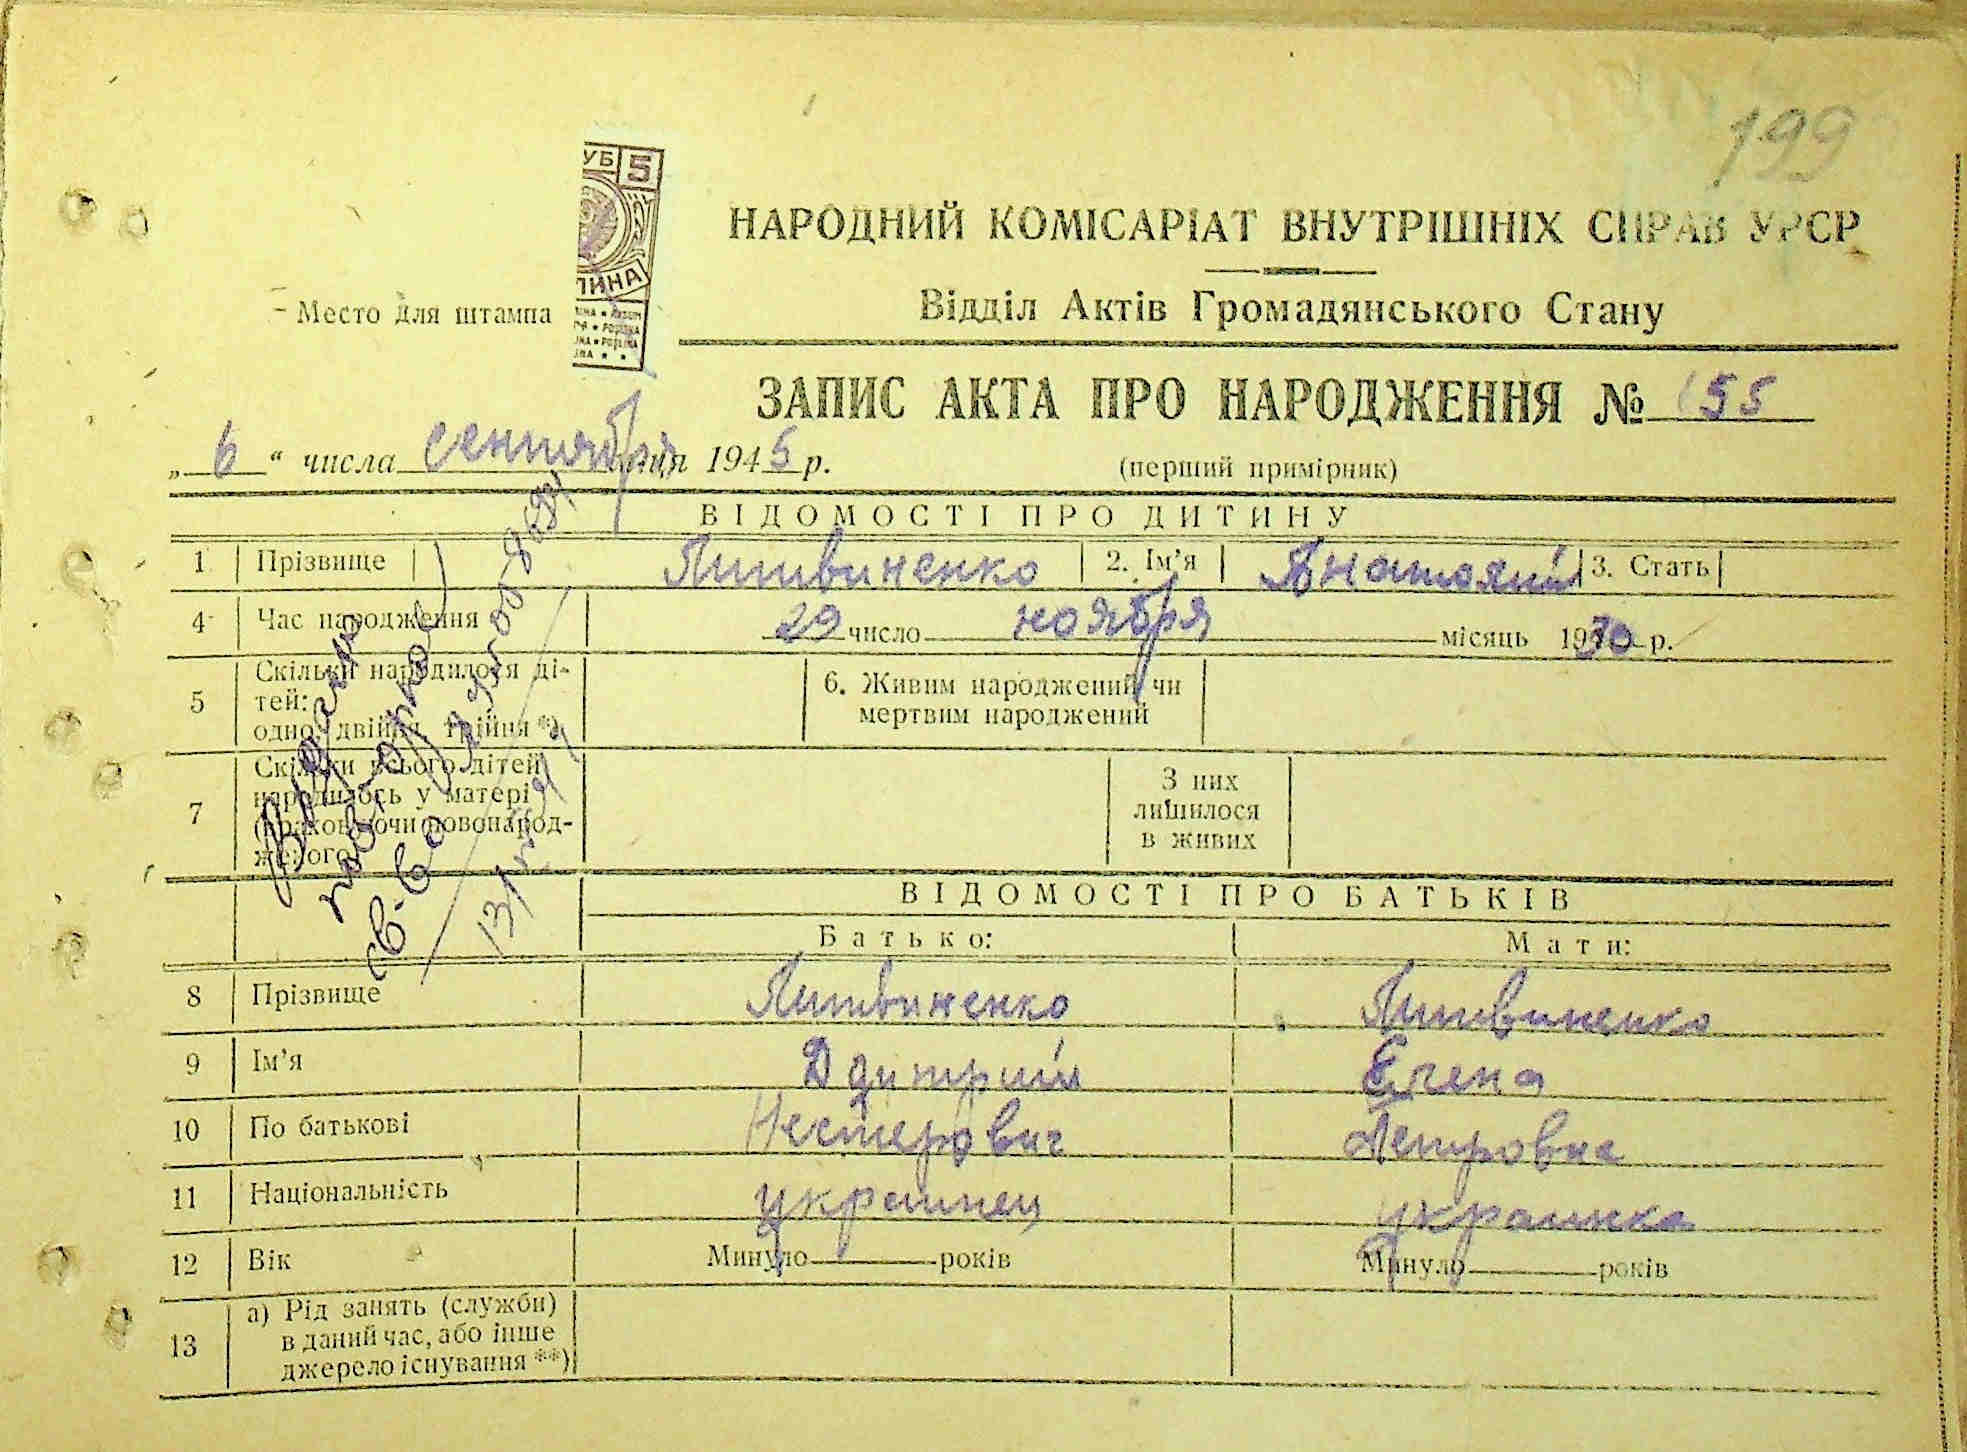 199
УБ 5
ЛИНА
НАРОДНИЙ КОМІСАРІАТ ВНУТРІШНІХ СПРАВ УРСР
Место для штампа
Відділ Актів Громадянського Стану
ЗАПИС АКТА ПРО НАРОДЖЕННЯ № 155
„ 6 “ числа сентября місяця 1945 р.
(перший примірник)
ВІДОМОСТІ ПРО ДИТИНУ
1 Прізвище Литвиненко 2. Ім’я Анатолий 3. Стать
4 Час народження 29 число ноября місяць 1930 р.
5 Скільки народилося ді-
тей:
одно, двійня, трійня *)
6. Живим народжений чи
мертвим народжений
7 Скільки всього дітей
народилось у матері
(враховуючи новонарод-
женого)
З них
лишилося
в живих
Выдано
повторное
св-во
ВІДОМОСТІ ПРО БАТЬКІВ
Батько: Мати:
8 Прізвище Литвиненко Литвиненко
9 Ім’я Дмитрий Елена
10 По батькові Нестерович Петровна
11 Національність украинец украинка
12 Вік Минуло років Минуло років
13 а) Рід занять (служби)
в даний час, або інше
джерело існування **)